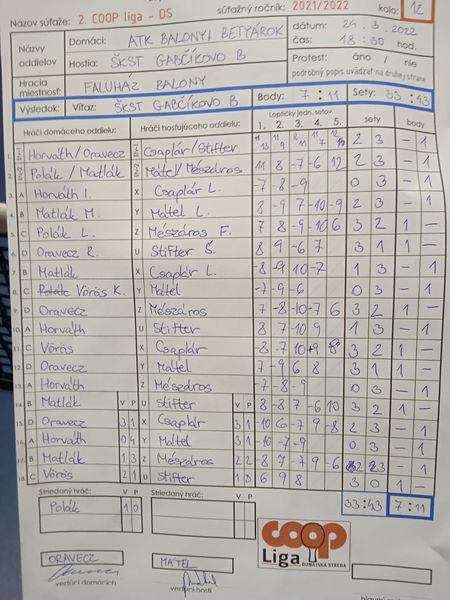 Názov súťaže: 2. COOP liga - DS súťažný ročník: 2021/2022 kolo: 12
Názvy oddielov Domáci: ATK BALONYI BETYÁROK dátum: 24. 3. 2022
Hostia: ŠKST GABČÍKOVO B čas: 18:30 hod.
Hracia miestnosť: FALUHÁZ BALONY Protest: áno / nie
podrobný popis uvádzať na druhej strane
Výsledok: Víťaz: ŠKST GABČÍKOVO B Body: 7 : 11 Sety: 33 : 43
Hráči domáceho oddielu: Hráči hosťujúceho oddielu: Loptičky jedn. setov sety body
1. 2. 3. 4. 5.
1. Horváth/Oravecz Csaplár/Stifter 2 3 - 1
2. Polák / Matlák Mátel/Mészáros 11 8 -7 -6 12 2 3 - 1
3. A Horváth I. X Csaplár L. -7 -8 -9 0 3 - 1
4. B Matlák M. Y Mátel L. 8 -9 7 -10 -9 2 3 - 1
5. C Polák L. Z Mészáros F. 7 8 -9 -10 6 3 2 1 -
6. D Oravecz R. U Stifter Š. 8 9 -6 7 3 1 1 -
7. B Matlák X Csaplár L. -8 -9 10 -7 1 3 - 1
8. C Vörös K. Y Mátel -7 -9 -6 0 3 - 1
9. D Oravecz Z Mészáros 7 -8 -10 -7 6 3 2 1 -
10. A Horváth U Stifter 8 7 10 9 1 3 - 1
11. C Vörös X Csaplár -8 -7 10 9 8 3 2 1 -
12. D Oravecz Y Mátel -7 9 6 8 3 1 1 -
13. A Horváth Z Mészáros -7 -8 -9 0 3 - 1
14. B Matlák V P U Stifter V P 8 -8 7 -6 10 3 2 1 -
15. D Oravecz 3 1 X Csaplár 3 1 -10 6 -7 9 -8 2 3 - 1
16. A Horváth 0 4 Y Mátel 3 1 -10 -7 -9 0 3 - 1
17. B Matlák 1 3 Z Mészáros 2 2 -8 7 -7 9 -6 2 3 - 1
18. C Vörös 2 1 U Stifter 1 3 6 9 8 3 0 1 -
Striedaný hráč: V P Striedaný hráč: V P 33:43 7:11
Polák 1 0
coop
Liga
DUNAJSKÁ STREDA
ORAVECZ MÁTEL
vedúci domácich vedúci hostí